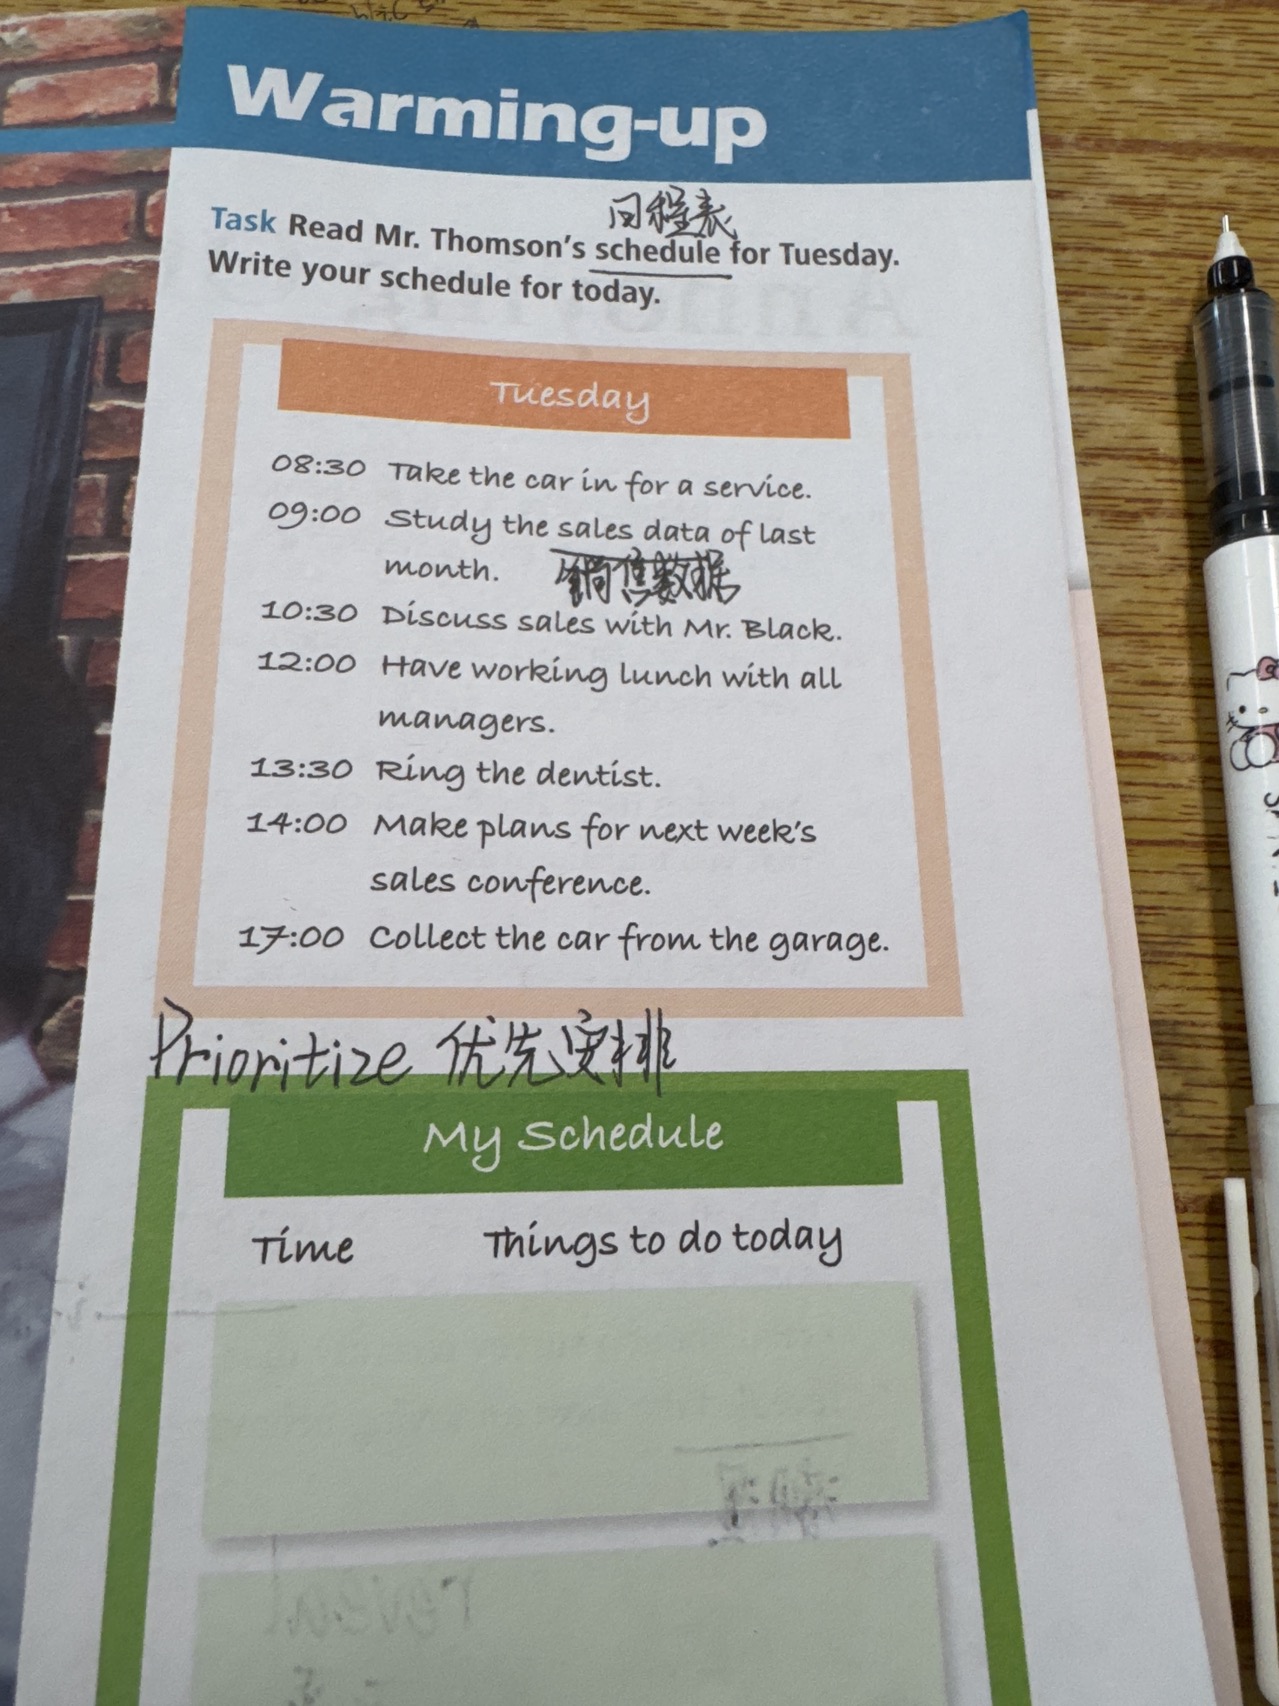 Warming-up
日程表
Task Read Mr. Thomson's schedule for Tuesday.
Write your schedule for today.
Tuesday
08:30 Take the car in for a service.
09:00 Study the sales data of last
month. 销售数据
10:30 Discuss sales with Mr. Black.
12:00 Have working lunch with all
managers.
13:30 Ring the dentist.
14:00 Make plans for next week's
sales conference.
17:00 Collect the car from the garage.
Prioritize 优先安排
My Schedule
Time Things to do today